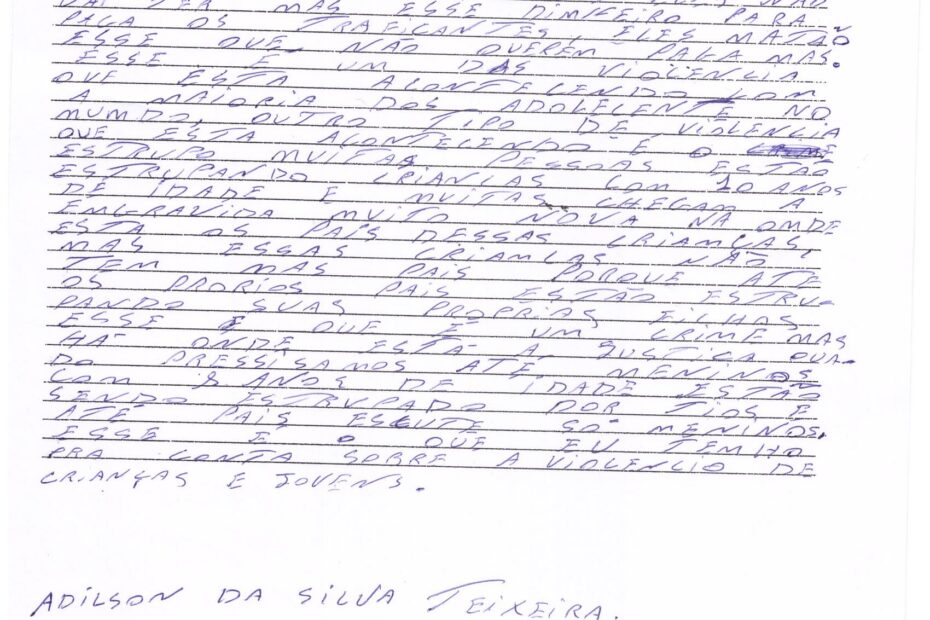 VAI TER MAS ESSE DIMHEIRO PARA
PAGA OS TRAFICANTES, ELES MATÃO
ESSE QUE NÃO QUEREM PAGA MAS.
ESSE E UM DAS VIOLENCIA
QUE ESTA ACONTELENDO COM
A MAIORIA DOS ADOLECENTE NO
MUMDO, OUTRO TIPO DE VIOLENCIA
QUE ESTA ACONTECENDO E O
ESTRUPO MUITAS PESSOAS ESTÃO
ESTRUPANDO CRIANÇAS COM 10 ANOS
DE IDADE E MUITAS CHEGAM A
EMGRAVIDA MUITO NOVA NA OMDE
ESTA OS PAIS DESSAS CRIAMÇAS,
MAS ESSAS CRIAMÇAS NÃO
TEM MAS PAIS PORQUE ATE
OS PRORIOS PAIS ESTÃO ESTRU-
PANDO SUAS PROPRIAS FILHAS
ESSE E QUE E UM CRIME MAS
HÁ ONDE ESTÁ A JUSTIÇA QUA-
DO PRESSISAMOS ATE MENINOS
COM 8 ANOS DE IDADE ESTÃO
SENDO ESTRUPADO POR TIOS E
ATÉ PAIS ESCUTE SÓ MENINOS,
ESSE E O QUE EU TEMHO
PRA CONTA SOBRE A VIOLENCIO DE
CRIANÇAS E JOVENS.
ADILSON DA SILVA TEIXEIRA.